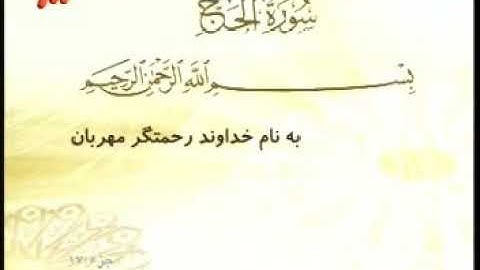 سُورَةُ الْحَجِّ
بِسْمِ اللَّهِ الرَّحْمَٰنِ الرَّحِيمِ
به نام خداوند رحمتگر مهربان
جزء ۱۷